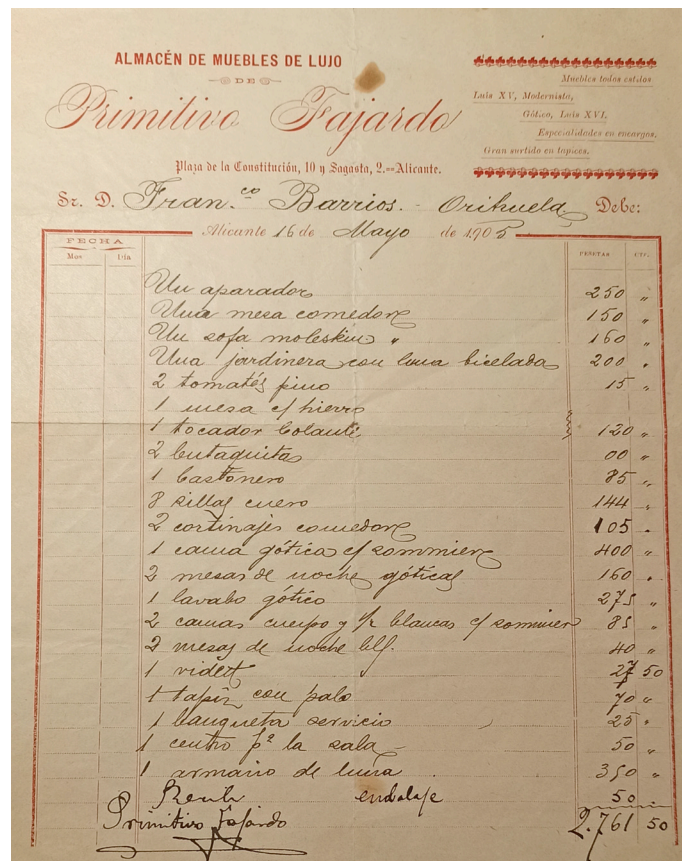 ALMACÉN DE MUEBLES DE LUJO
DE
Primitivo Fajardo
Plaza de la Constitución, 10 y Sagasta, 2.==Alicante.
Muebles todos estilos
Luis XV, Modernista,
Gótico, Luis XVI.
Especialidades en encargos.
Gran surtido en tapices.
Sr. D. Fran.co Barrios. - Orihuela Debe:
Alicante 16 de Mayo de 1905
FECHA
Mes Día PESETAS CTS.
Un aparador 250 "
Una mesa comedor 150 "
Un sofa moleskin " 160 "
Una jardinera con luna bicelada 200 "
2 tomatés pino 15 "
1 mesa c/ hierro
1 tocador 120 "
2 butaquitas 00 "
1 bastonero 85 "
8 sillas cuero 144 "
2 cortinajes comedor 105 "
1 cama gótica c/ sommier 400 "
2 mesas de noche góticas 160 "
1 lavabo gótico 275 "
2 camas cuerpo y 1/2 blancas c/ sommier 85 "
2 mesas de noche 40 "
1 videt 27 50
1 tapiz con palo 70 "
1 banqueta servicio 25 "
1 centro pª la sala 50 "
1 armario de luna 350 "
embalaje 50
Primitivo Fajardo 2.761 50